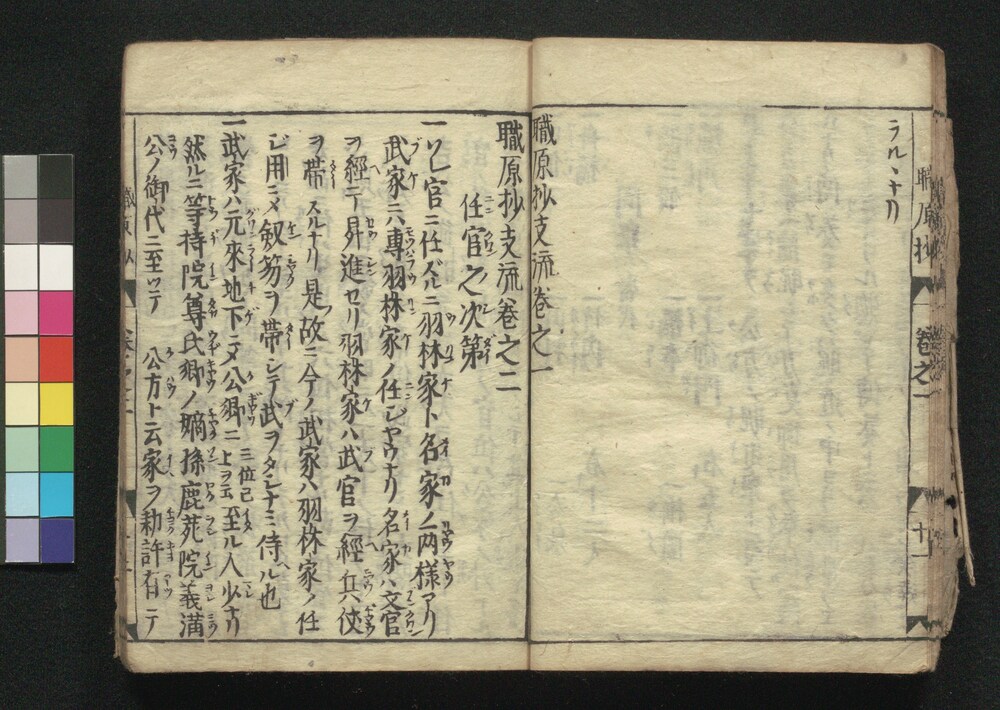 ラル、ナリ
職原抄支流卷之一
職原抄支流卷之二
任官之次第
一ソレ官ニ任ズルニ羽林家ト名家ノ兩樣アリ
武家ニハ專羽林家ノ任ジヤウナリ名家ハ文官
ヲ經テ昇進セリ羽林家ハ武官ヲ經兵仗
ヲ帶スルナリ是故ニ今ノ武家ハ羽林家ノ任
ジ用ニメ釼笏ヲ帶シテ武ヲタシナミ侍ベル也
一武家ハ元來地下ニメ公卿ニ三位已上ヲ云至ル人少ナリ
然ルニ等持院尊氏卿ノ嫡孫鹿苑院義滿
公ノ御代ニ至ッテ 公方ト云家ヲ勅許有テ
職原抄 卷之一 十一